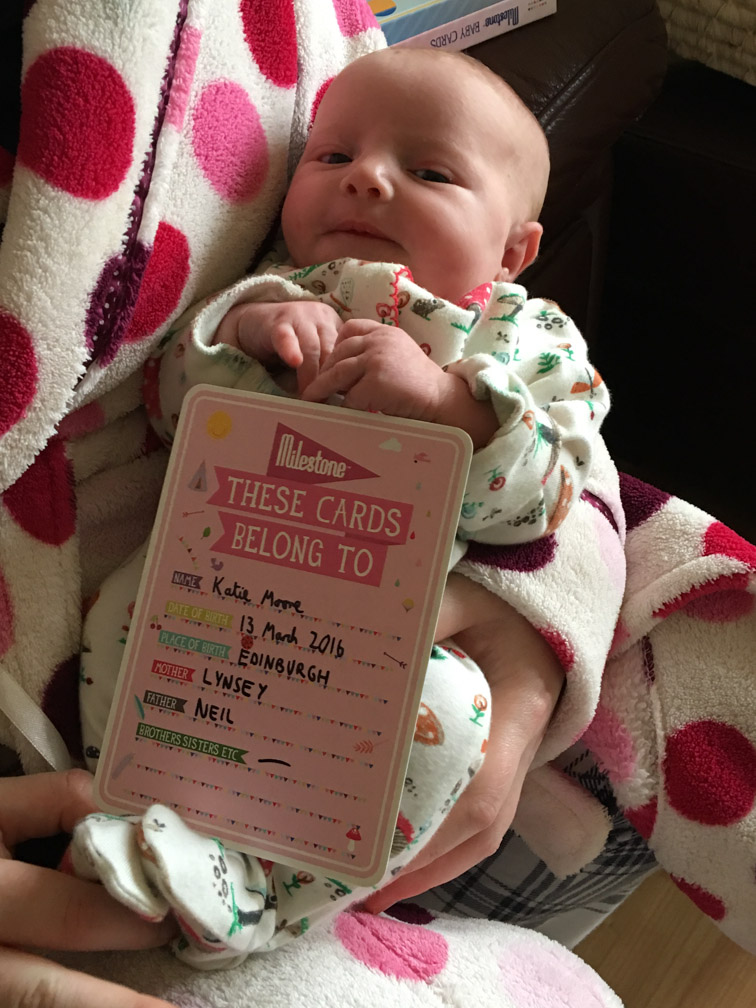 Milestone™ BABY CARDS
Milestone™
THESE CARDS
BELONG TO
NAME Katie Moore
DATE OF BIRTH 13 March 2016
PLACE OF BIRTH EDINBURGH
MOTHER LYNSEY
FATHER NEIL
BROTHERS SISTERS ETC —